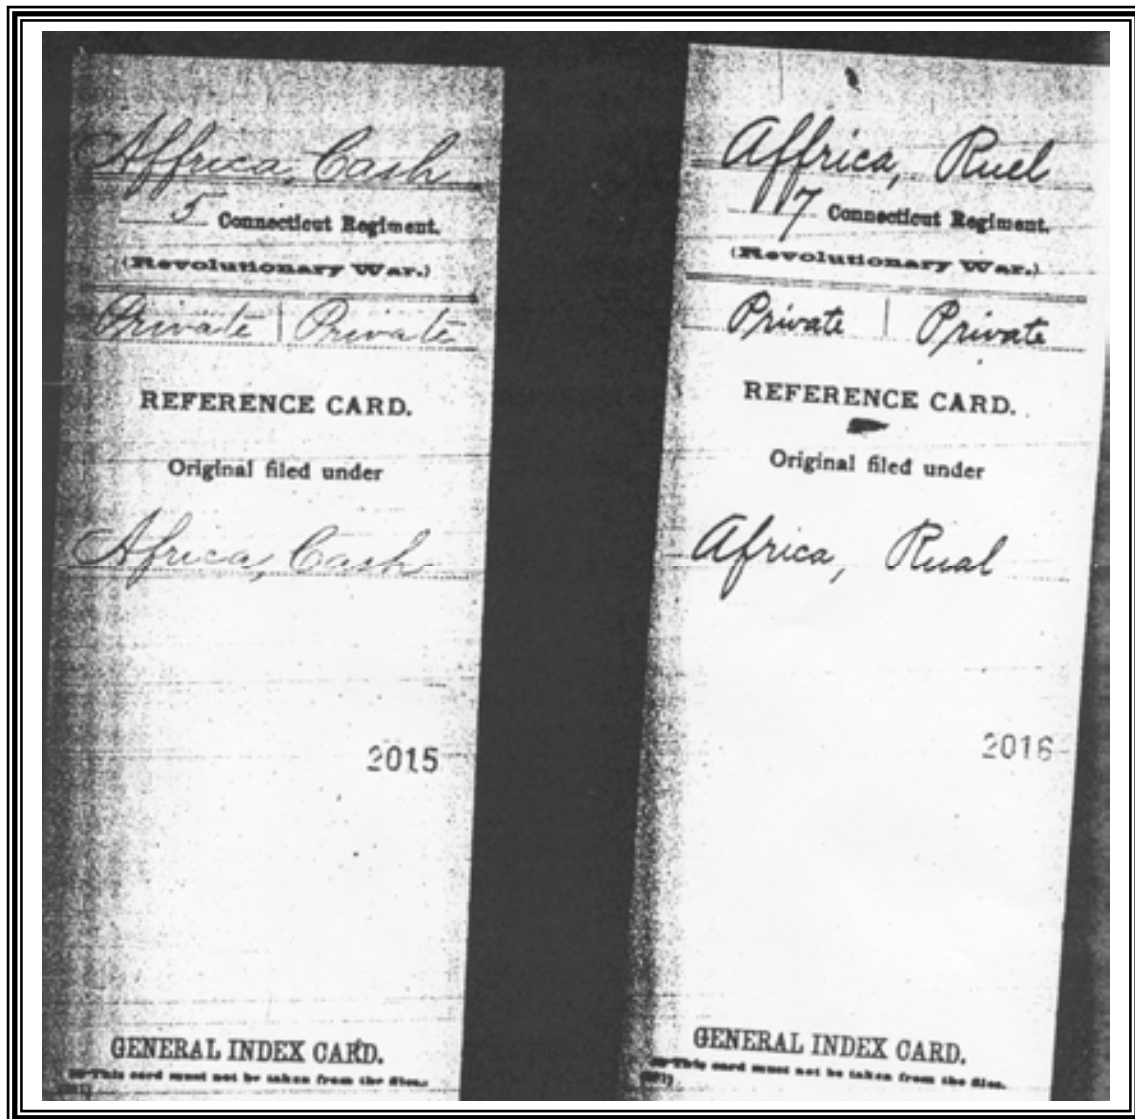 Affrica, Cash
5 Connecticut Regiment.
(Revolutionary War.)
Private | Private
REFERENCE CARD.
Original filed under
Africa, Cash
2015
GENERAL INDEX CARD.
This card must not be taken from the files.
Affrica, Ruel
7 Connecticut Regiment.
(Revolutionary War.)
Private | Private
REFERENCE CARD.
Original filed under
Africa, Rual
2016
GENERAL INDEX CARD.
This card must not be taken from the files.